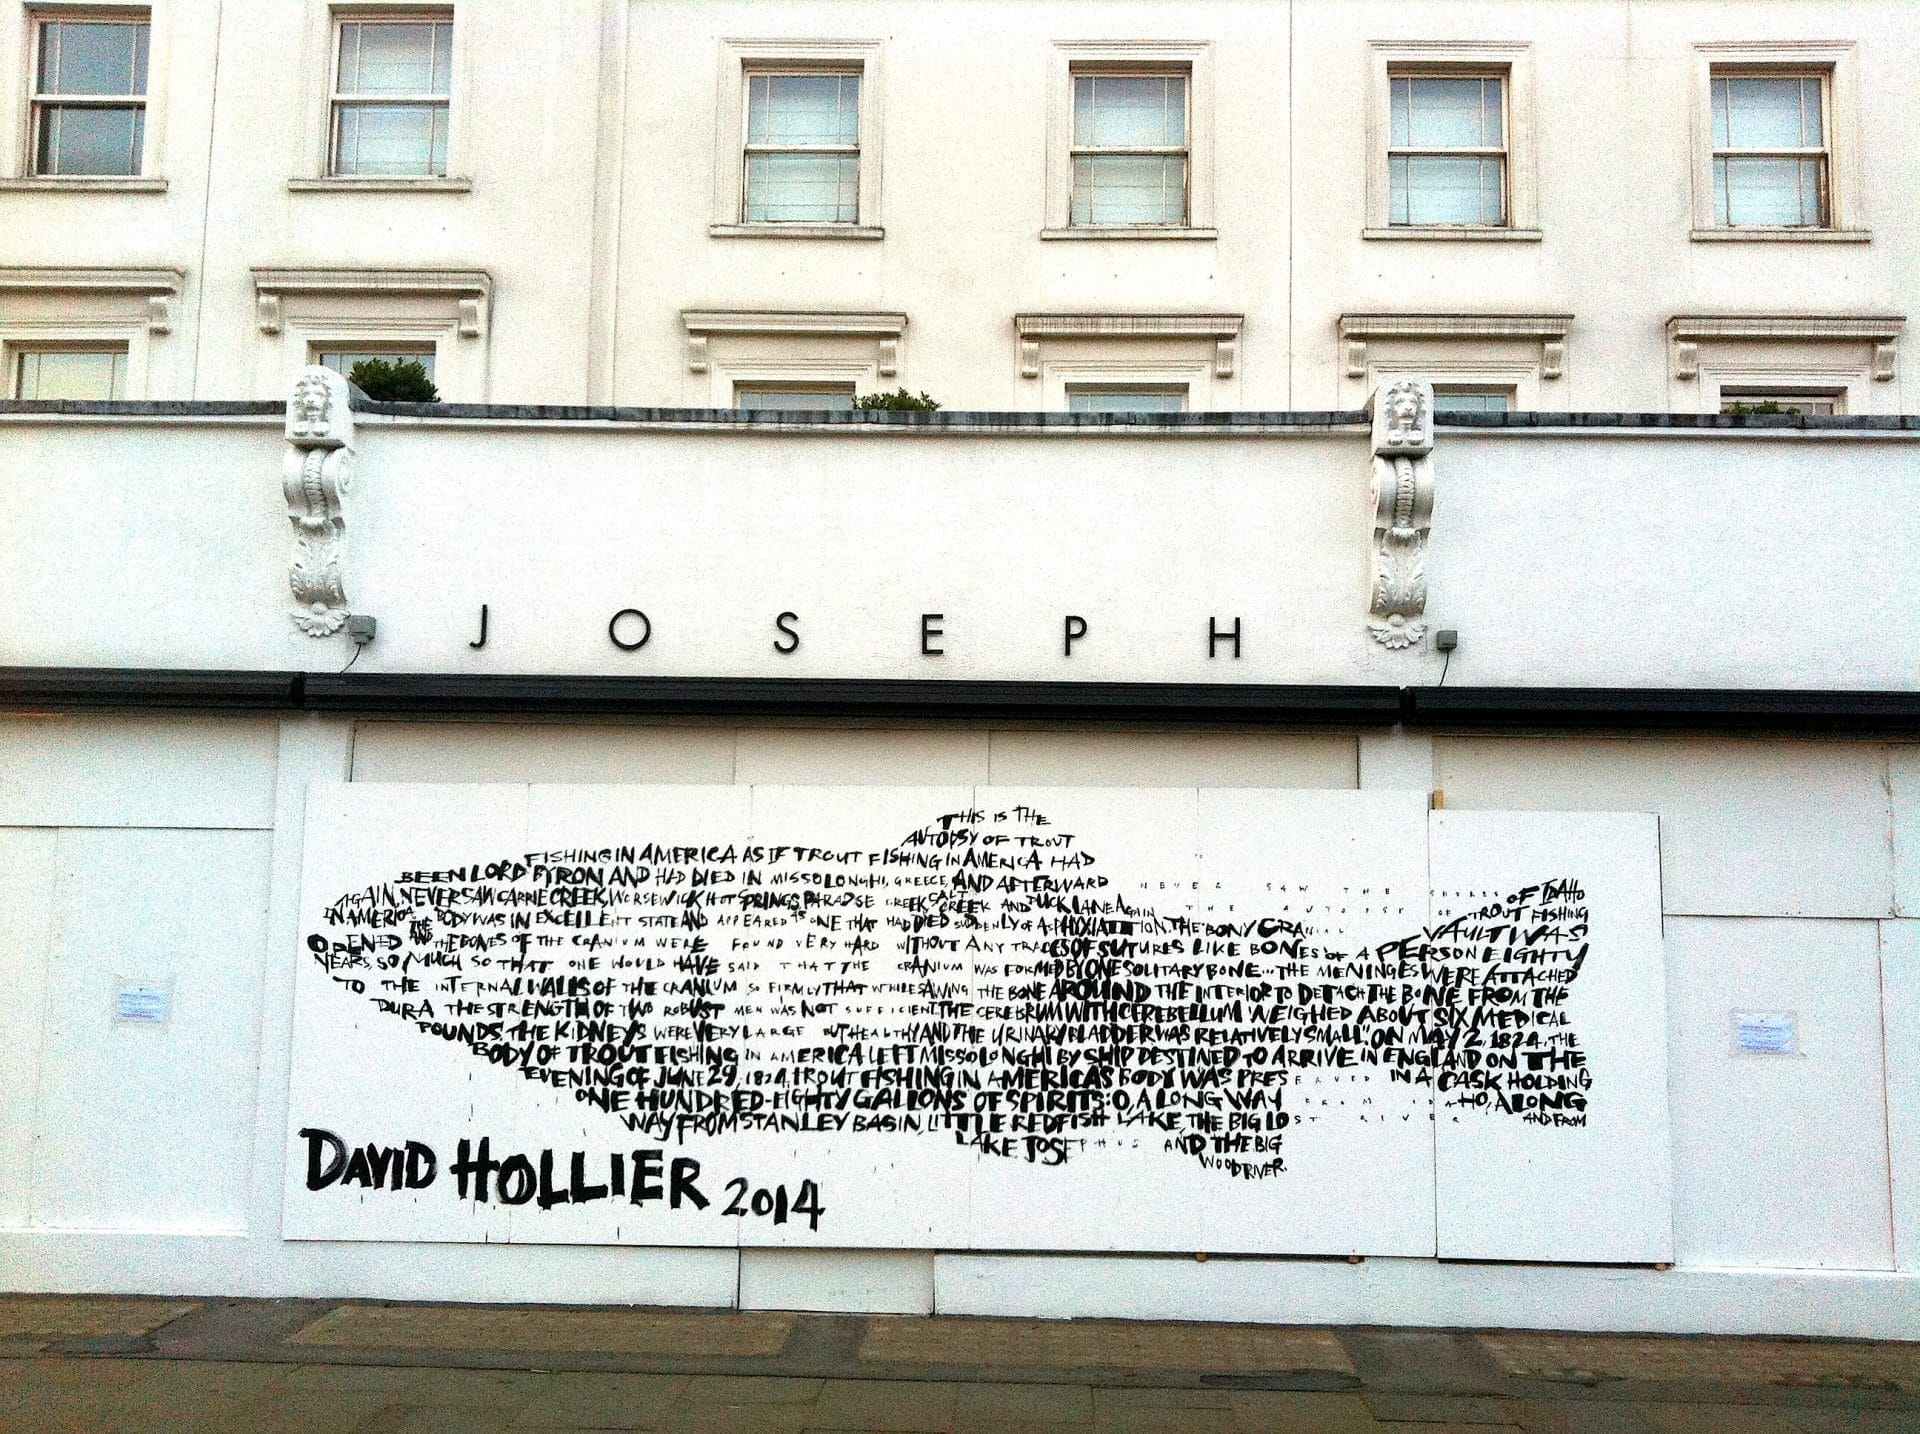 JOSEPH
THIS IS THE
AUTOPSY OF TROUT
FISHING IN AMERICA AS IF TROUT FISHING IN AMERICA HAD
BEEN LORD BYRON AND HAD DIED IN MISSOLONGHI, GREECE, AND AFTERWARD NEVER SAW THE SHORES OF IDAHO
AGAIN. NEVER SAW CARRIE CREEK, WORSEWICK HOT SPRINGS, PARADISE CREEK, SALT CREEK AND DUCK LAKE AGAIN. THE AUTOPSY OF TROUT FISHING
IN AMERICA. THE BODY WAS IN EXCELLENT STATE AND APPEARED AS ONE THAT HAD DIED SUDDENLY OF ASPHYXIATION. THE BONY CRANIAL VAULT WAS
OPENED AND THE BONES OF THE CRANIUM WERE FOUND VERY HARD WITHOUT ANY TRACES OF SUTURES LIKE BONES OF A PERSON EIGHTY
YEARS, SO MUCH SO THAT ONE WOULD HAVE SAID THAT THE CRANIUM WAS FORMED BY ONE SOLITARY BONE... THE MENINGES WERE ATTACHED
TO THE INTERNAL WALLS OF THE CRANIUM SO FIRMLY THAT WHILE SAWING THE BONE AROUND THE INTERIOR TO DETACH THE BONE FROM THE
DURA THE STRENGTH OF TWO ROBUST MEN WAS NOT SUFFICIENT. THE CEREBRUM WITH CEREBELLUM WEIGHED ABOUT SIX MEDICAL
POUNDS. THE KIDNEYS WERE VERY LARGE BUT HEALTHY AND THE URINARY BLADDER WAS RELATIVELY SMALL." ON MAY 2, 1824, THE
BODY OF TROUT FISHING IN AMERICA LEFT MISSOLONGHI BY SHIP DESTINED TO ARRIVE IN ENGLAND ON THE
EVENING OF JUNE 29, 1824. TROUT FISHING IN AMERICA'S BODY WAS PRESERVED IN A CASK HOLDING
ONE HUNDRED-EIGHTY GALLONS OF SPIRITS: O, A LONG WAY FROM IDAHO, A LONG
WAY FROM STANLEY BASIN, LITTLE REDFISH LAKE, THE BIG LOST RIVER AND FROM
LAKE JOSEPHUS AND THE BIG
WOOD RIVER.
DAVID HOLLIER 2014